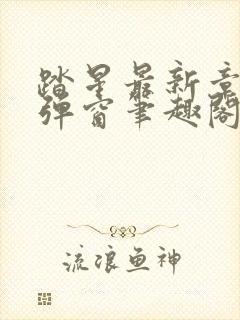 踏星最新章
弹窗笔趣阁
流浪鱼神